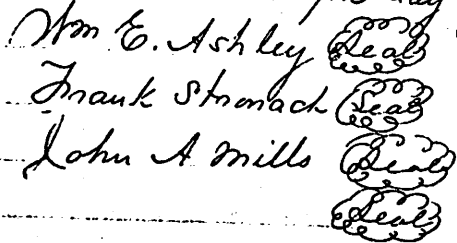 day
Wm E. Ashley Seal
Frank Stronach Seal
John A Mills Seal
Seal